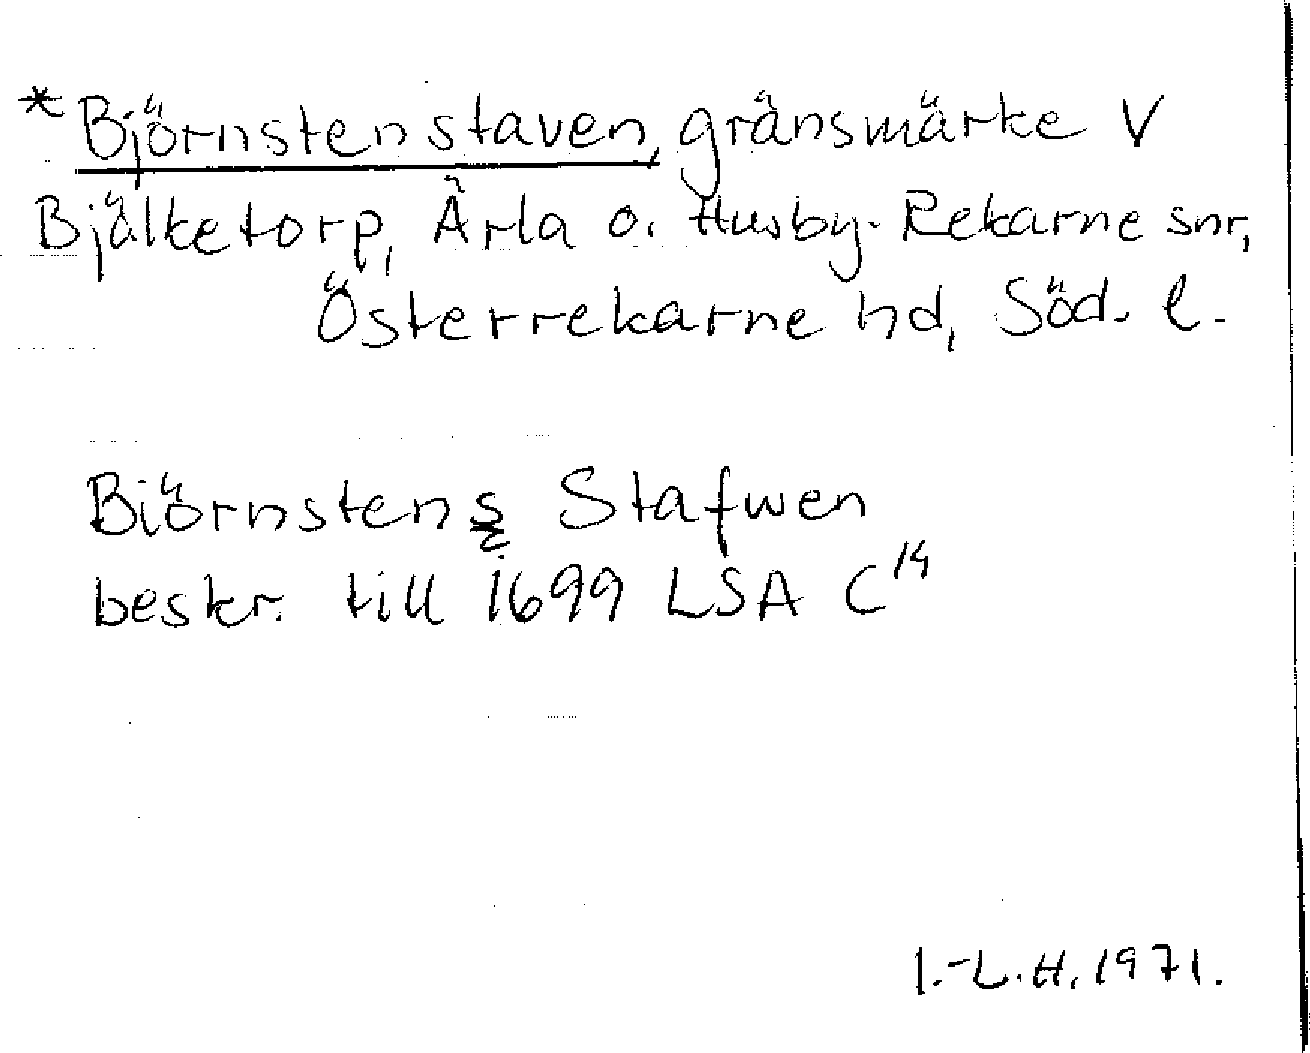 *Björnstenstaven, gränsmärke V
Bjälketorp, Ärla o. Husby-Rekarne snr,
Österrekarne hd, Söd. l.
Biörnstens Stafwen
beskr. till 1699 LSA C14
I.-L.H. 1971.